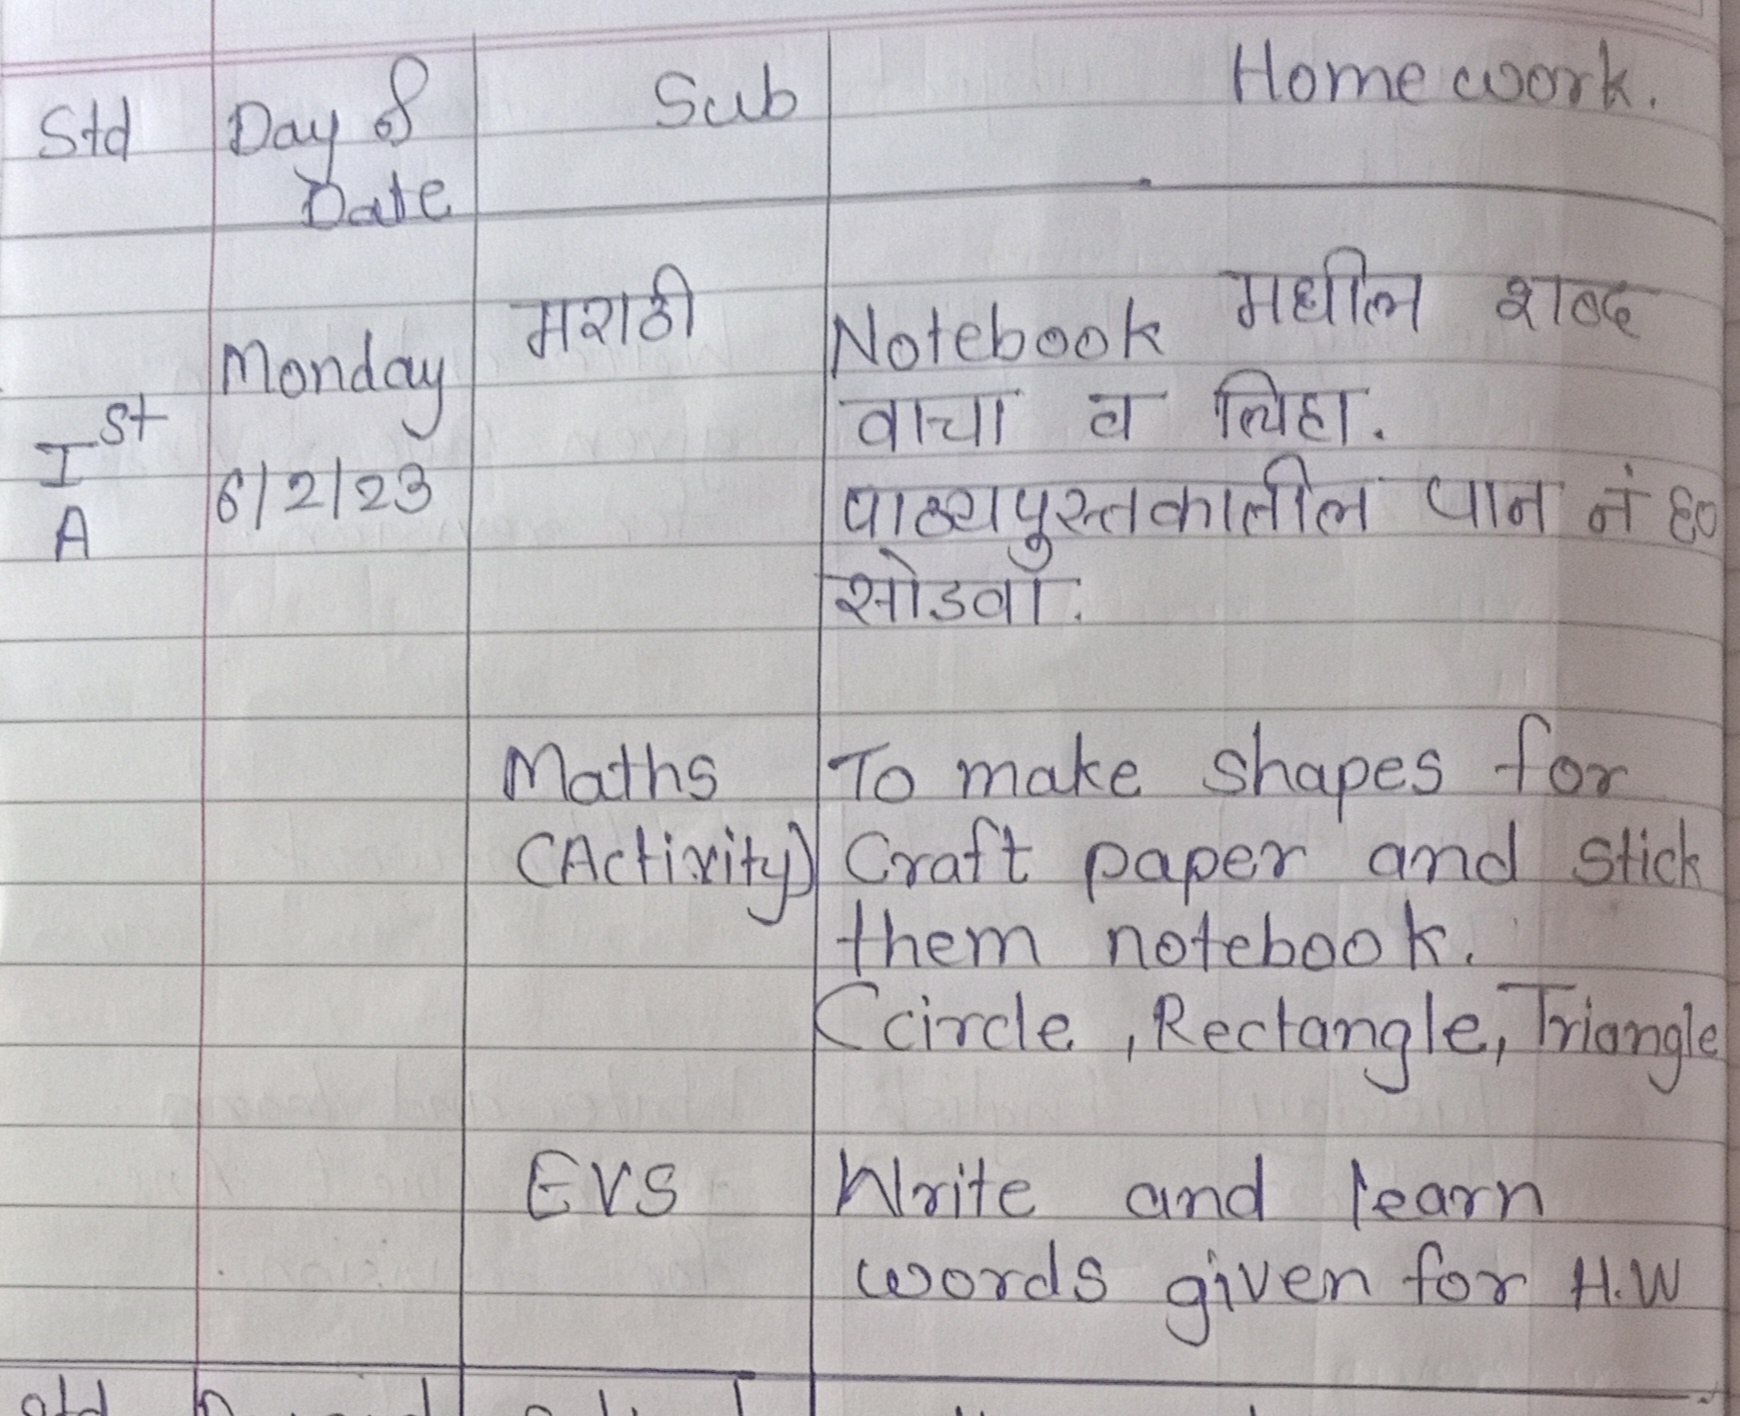 Std Day & Sub Home work.
Date
मराठी Notebook मधील शब्द
Monday वाचा व लिहा.
Ist
A 6/2/23 पाठ्यपुस्तकातील पान नं ६०
सोडवा.
Maths To make shapes for
(Activity) Craft paper and stick
them notebook.
(circle, Rectangle, Triangle
EVS Write and learn
words given for H.W